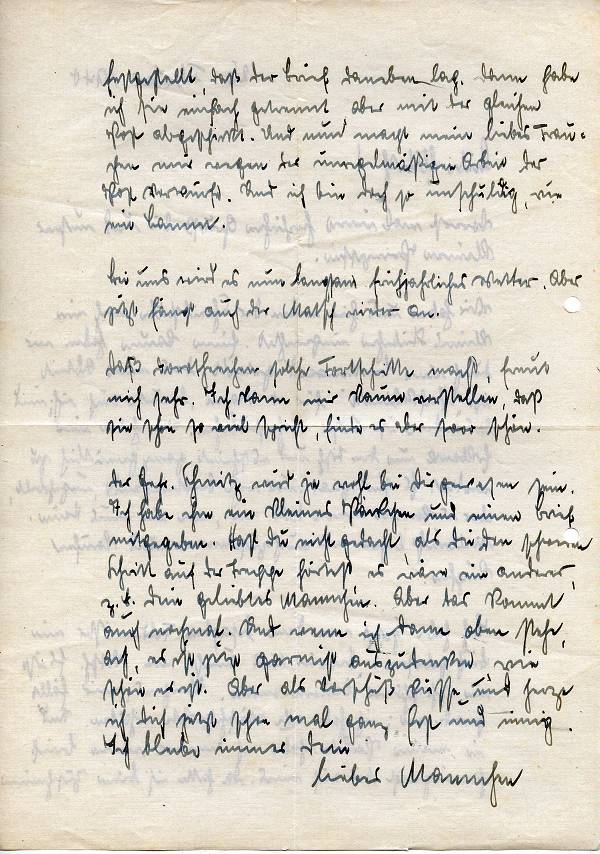 festgestellt, daß der Brief daneben lag. Dann habe
ich sie einfach getrennt, aber mit der gleichen
Post abgeschickt. Und nun macht mein liebes Frau-
chen mir wegen der unregelmäßigen Arbeit der
Post Vorwürfe. Und ich bin doch so unschuldig, wie
ein Lamm.
Bei uns wird es nun langsam frühjahrliches Wetter. Aber
jetzt fängt auch der Matsch wieder an.
Daß Dorotheechen solche Fortschritte macht, freut
mich sehr. Ich kann mir kaum vorstellen, daß
sie schon so viel spricht, finde es aber sehr schön.
Der Gefr. Schmitz wird ja wohl bei Dir gewesen sein.
Ich habe ihm ein kleines Päckchen und einen Brief
mitgegeben. Hast Du nicht gedacht, als Du den schweren
Schritt auf der Treppe hörtest es wäre ein anderer,
z.B. Dein geliebtes Mannchen. Aber das kommt
auch nochmal. Und wenn ich dann oben stehe,
ach, es ist jetzt garnicht auszudenken wie
schön es ist. Aber als Vorschuß küsse und herze
ich Dich jetzt schon mal ganz fest und innig.
Ich bleibe immer Dein
liebes Mannchen